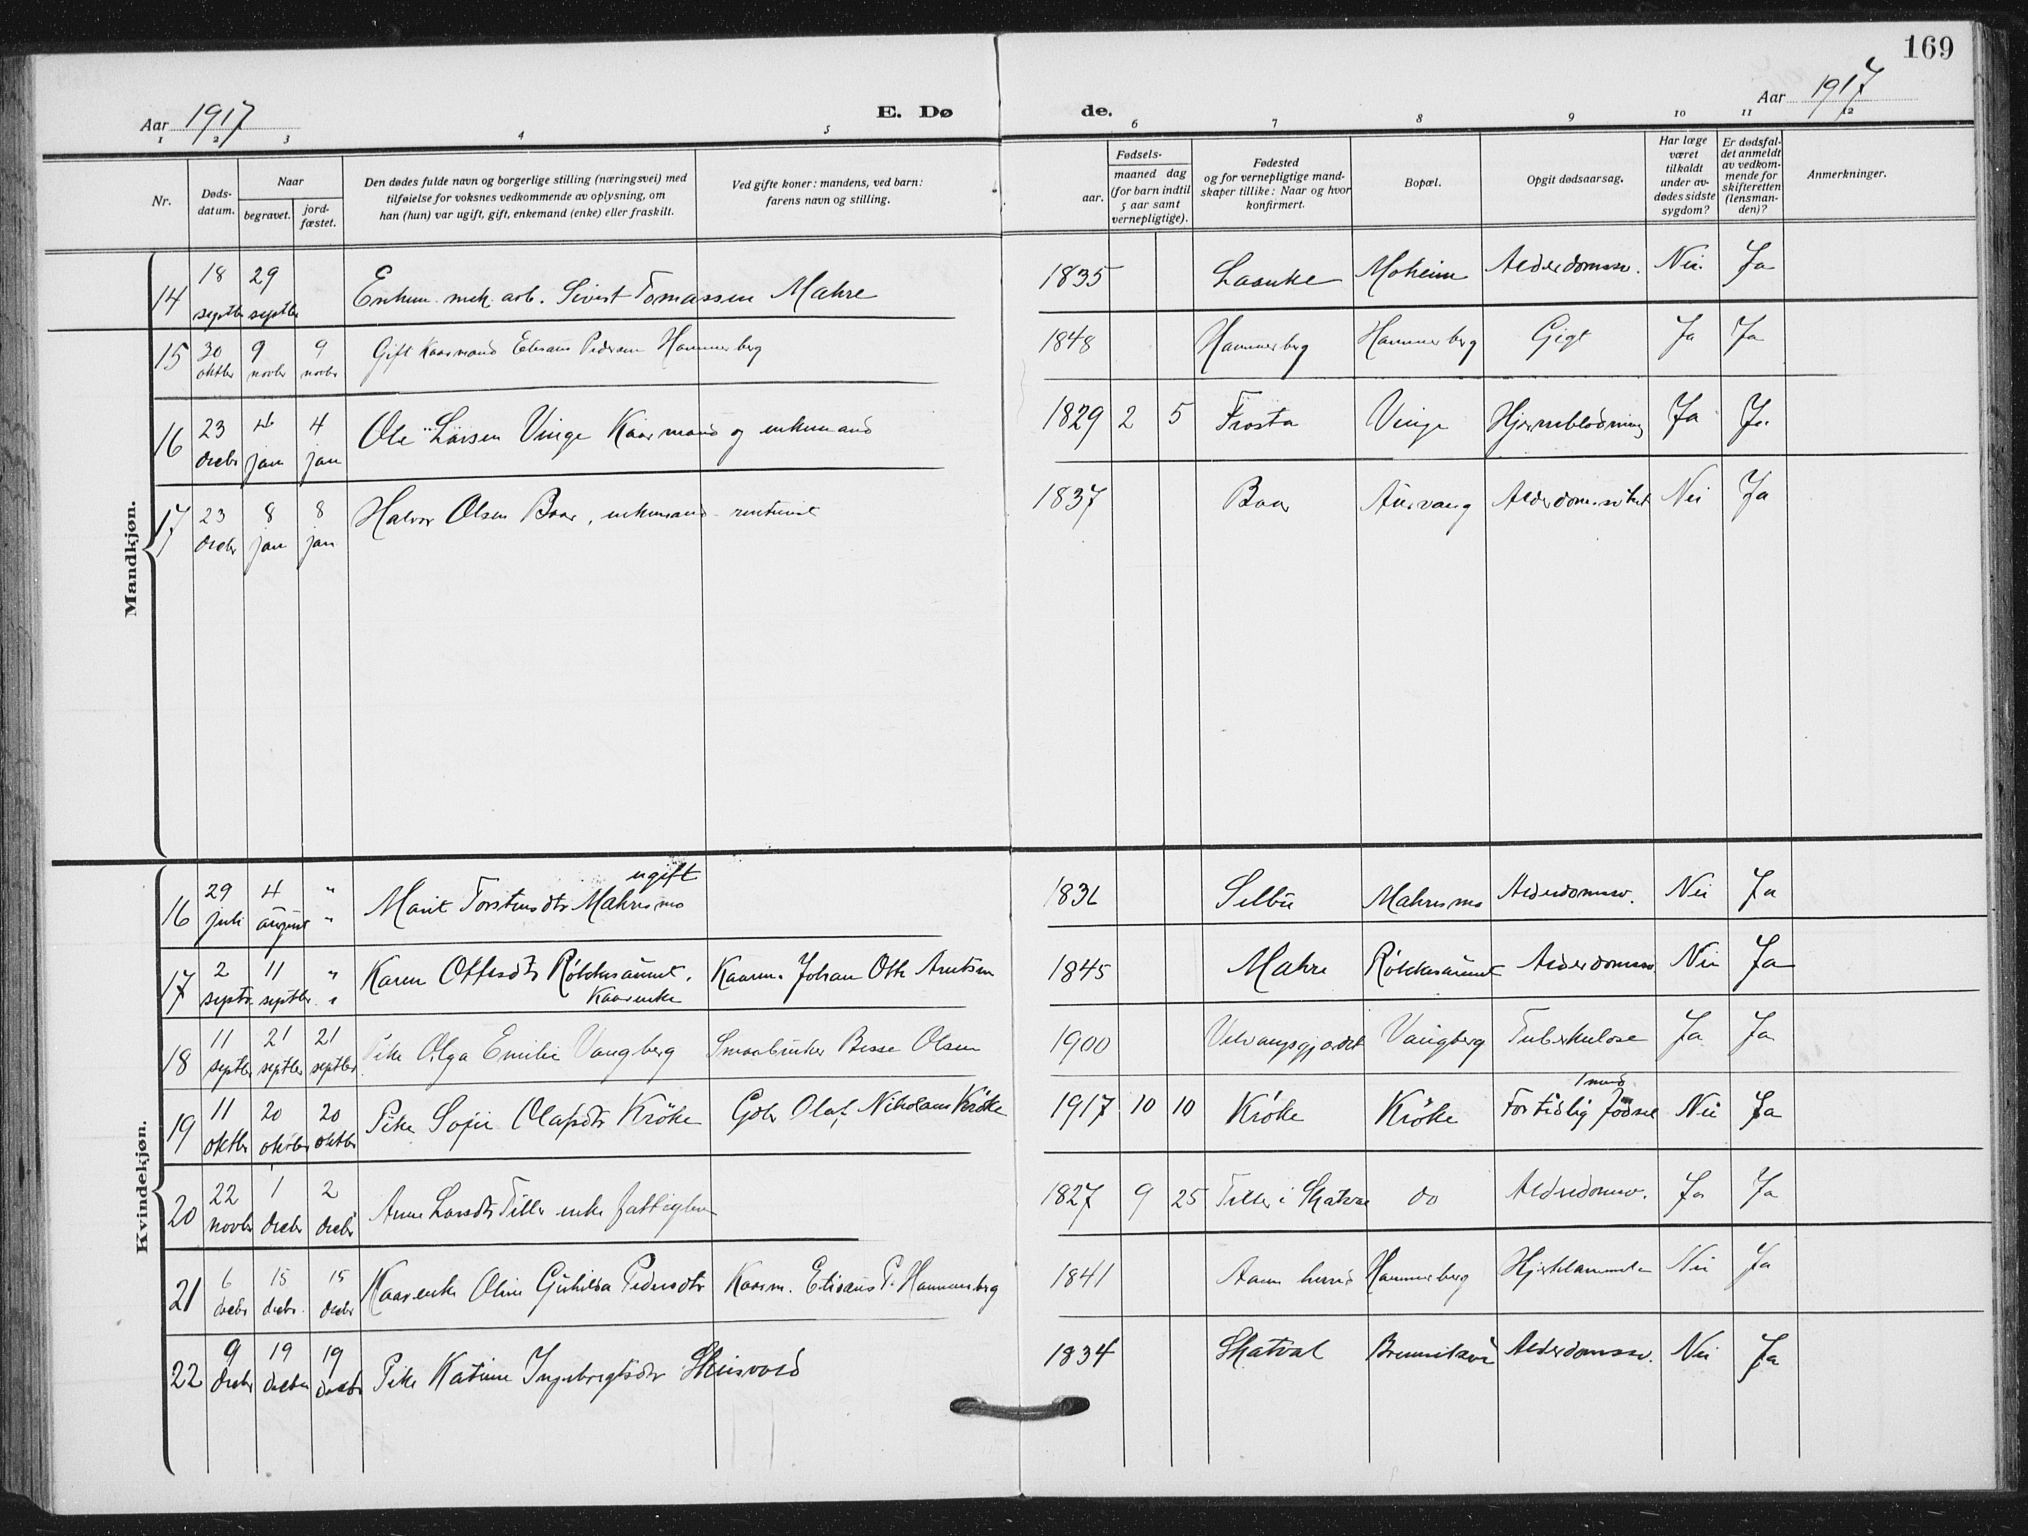 169
Aar 1917
E. Døde.
Aar 1917
1 2 3 4 5 6 7 8 9 10 11 12
Nr.
Dødsdatum.
Naar
begravet.
jordfæstet.
Den dødes fulde navn og borgerlige stilling (næringsvei) med
tilføielse for voksnes vedkommende av oplysning, om
han (hun) var ugift, gift, enkemand (enke) eller fraskilt.
Ved gifte koner: mandens, ved barn:
farens navn og stilling.
Fødsels-
aar.
maaned dag
(for barn indtil
5 aar samt
vernepligtige).
Fødested
og for vernepligtige mand-
skaper tillike: Naar og hvor
konfirmert.
Bopæl.
Opgit dødsaarsag.
Har læge
været
tilkaldt
under av-
dødes sidste
sygdom?
Er dødsfal-
det anmeldt
av vedkom-
mende for
skifteretten
(lensman-
den)?
Anmerkninger.
Mandkjøn.
14 18 septbr 29 septbr Enkem. mek. arb. Sivert Tomassen Mahre 1835 Laanke Moheim Alderdomssv. Nei. Ja
15 30 oktbr 9 novbr 9 novbr Gift Kaarmand Elisæus Pedersen Hammerberg 1848 Hammerberg Hammerberg Gigt Ja Ja
16 23 decbr 4 jan 4 jan Ole Larsen Vinge Kaarmand og enkemand 1829 2 5 Frosta Vinge Hjerneblødning Ja Ja
17 23 decbr 8 jan 8 jan Halvor Olsen Baar, enkemand rentenist 1837 Baar Aurvang Alderdomssvakhet Nei Ja
Kvindekjøn.
16 29 juli 4 august " " Marit Torstensdtr Mahresmo ugift 1836 Selbu Mahresmo Alderdomssv. Nei Ja
17 2 septbr. 11 septbr. " " Karen Offesdtr Røkkesaunet. Kaarenke Kaarm. Johan Otto Arntsen 1845 Mahre Røkkesaunet Alderdomssv Nei Ja
18 11 septbr 21 septbr 21 septbr Pike Olga Emilie Vangberg Smaabruker Besse Olsen 1900 Velvangsgjærdet Vangberg Tuberkulose Ja Ja
19 11 oktbr 20 oktbr 20 oktbr Pike Sofie Olafsdtr Krøke Gbr Olaf Nikolaus Krøke 1917 10 10 Krøke Krøke For tidlig fødsel 1 mnd Nei Ja
20 22 novbr 1 decbr 2 decbr Anne Larsdtr Tiller enke fattiglem 1827 9 25 Tiller i Skatval do Alderdomsv. Ja Ja
21 6 decbr 15 decbr. 15 decbr Kaarenke Oline Gurhilda Pedersdtr Kaarm. Elisæus P. Hammerberg 1841 Aasen herred Hammerberg Hjertelammelse Nei Ja
22 9 decbr 19 decbr 19 decbr Pike Katrine Ingebrigtsdtr 1834 Skatval Alderdomssv. Nei Ja